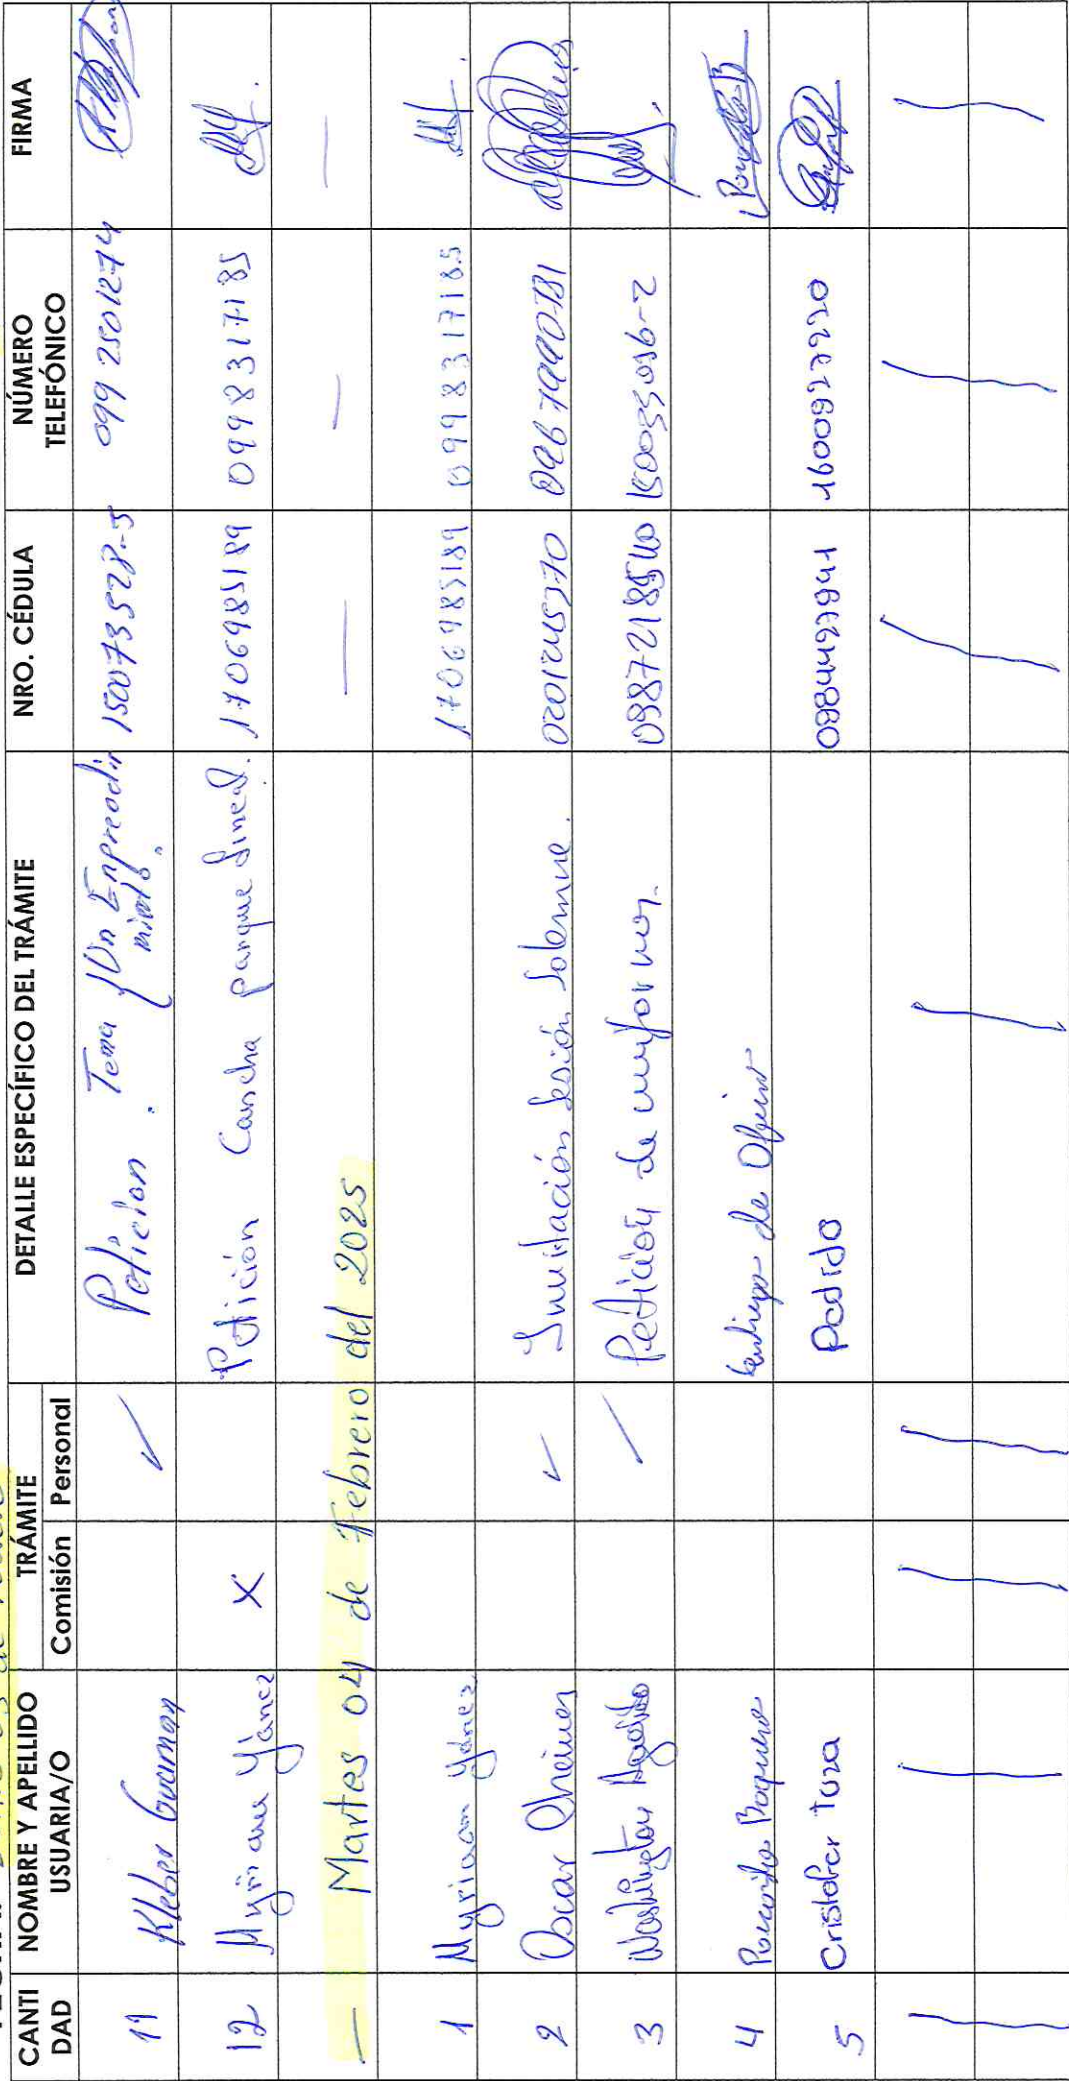 CANTI DAD
NOMBRE Y APELLIDO USUARIA/O
TRÁMITE
Comisión Personal
DETALLE ESPECÍFICO DEL TRÁMITE
NRO. CÉDULA
NÚMERO TELEFÓNICO
FIRMA
11 Kleber Guaman ✓ Petición . Tema Un Enpreodin miento. 150073528-5 0992501274
12 Myriam Yánez X Petición Cancha parque lineal. 1706985189 0998317185
— Martes 04 de Febrero del 2025 — —
1 Myriam Yánez 1706985189 0998317185
2 Oscar ✓ Invitación Sesión Solemne. 0201245370
3 Washington ✓ Petición de uniformes. 0987218540 150035096-2
4 de
5 Cristofer Tuza Pedido 0984497941 1600927230